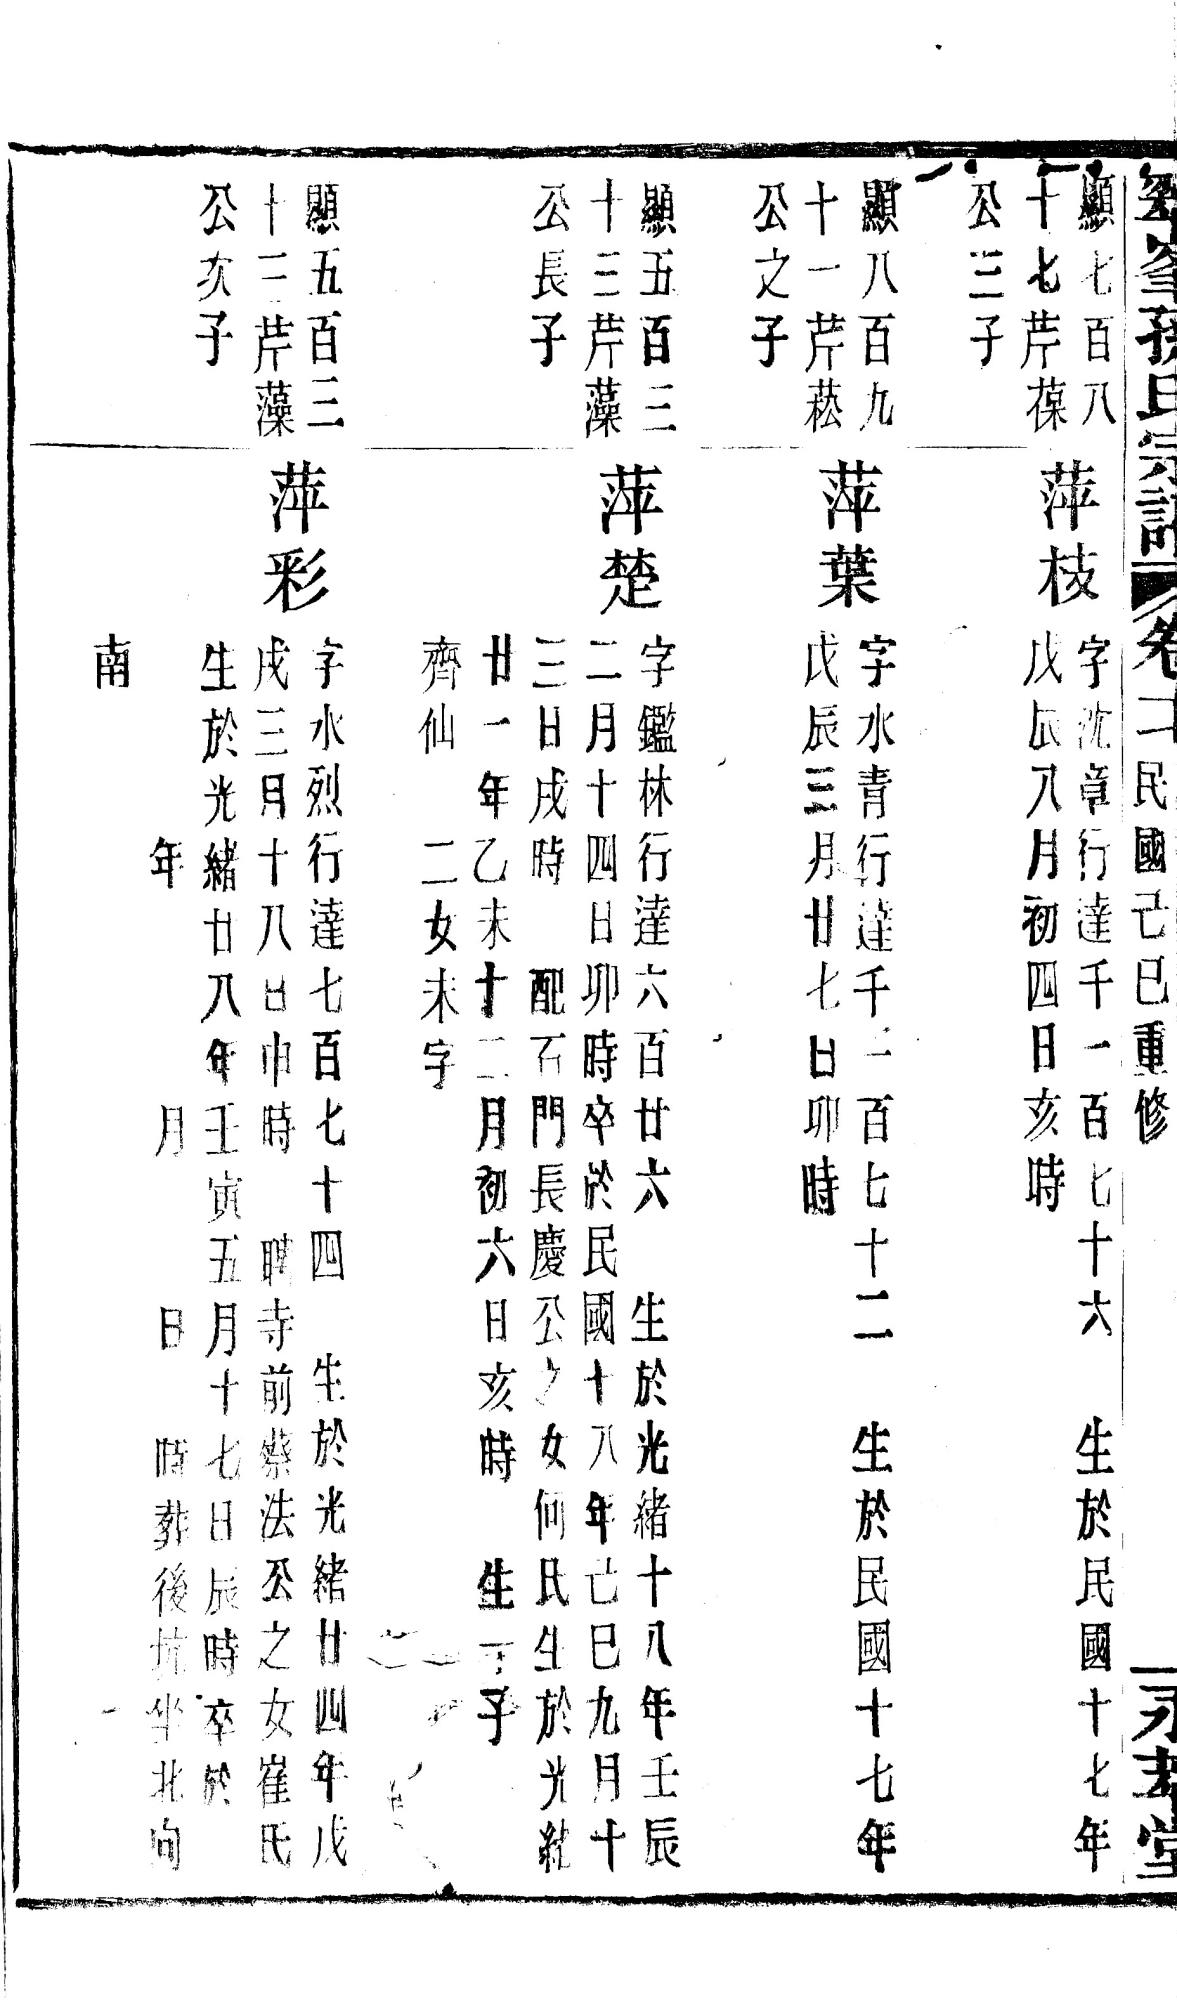 峯孫氏宗譜 卷二 民國己巳重修 永孝堂
顯七百八
十七芹葆
公三子
萍枝
字沈章行達千一百七十六 生於民國十七年
戊辰八月初四日亥時
顯八百九
十一芹菘
公之子
萍葉
字水青行達千一百七十二 生於民國十七年
戊辰三月廿七日卯時
顯五百三
十三芹藻
公長子
萍楚
字鑑林行達六百廿六 生於光緒十八年壬辰
二月十四日卯時卒於民國十八年己巳九月十
三日戌時 配石門長慶公之女何氏生於光緒
廿一年乙未十二月初六日亥時 生一子
齊仙 二女未字
顯五百三
十三芹藻
公次子
萍彩
字水烈行達七百七十四 生於光緒廿四年戊
戌三月十八日申時 聘寺前蔡法公之女崔氏
生於光緒廿八年壬寅五月十七日辰時卒於
年 月 日 時葬後坑坐北向
南